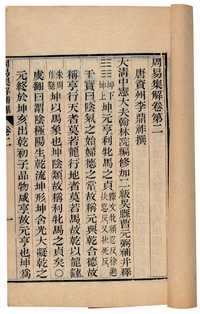 周易集解卷第二
唐資州李鼎祚撰
大清中憲大夫翰林院編修加二級吳縣曹元弼補并釋
坤下坤上 坤元亨利牝馬之貞
干寶曰陰氣之始婦德之常故稱元與乾合德故
稱亨行天者莫若龍行地者莫若馬故乾以龍繇
坤以馬象也坤陰類故稱利牝馬之貞矣○
虞翻曰謂陰極陽生乾流坤形坤含光大凝乾之
元終於坤亥出乾初子品物咸亨故元亨也坤爲
卷二